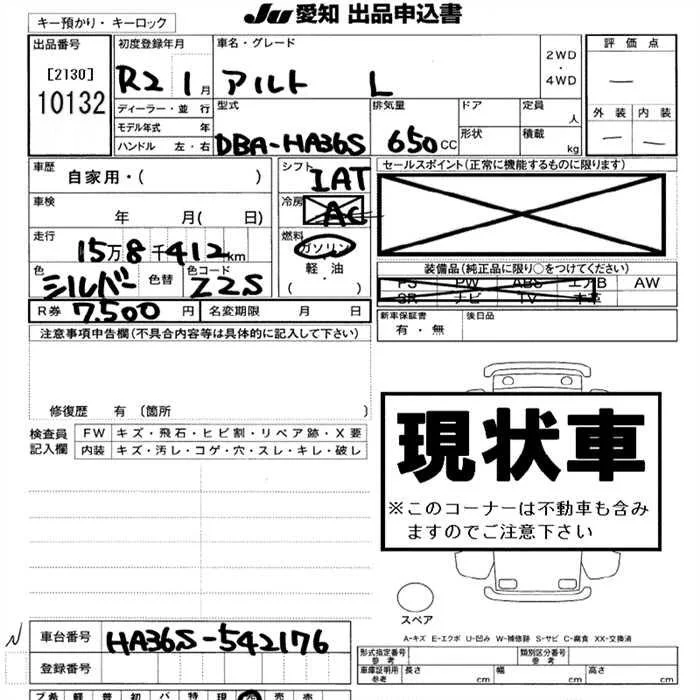 キー預かり・キーロック
JU 愛知 出品申込書
出品番号
[2130]
10132
初度登録年月
R2 1月
車名・グレード
アルト L
2WD
・
4WD
評価点
—
外装 内装
— —
ディーラー・並 行
モデル年式 年
ハンドル 左・右
型式
DBA-HA36S
排気量
650cc
ドア
形状
定員
人
積載
kg
車歴
自家用・( )
シフト
IAT
セールスポイント(正常に機能するものに限ります)
車検
年 月( 日)
冷房
AC
走行
15万8千412km
燃料
ガソリン
軽・油
( ・ )
色
シルバー
色替
色コード
Z2S
装備品(純正品に限り○をつけてください)
PS PW ABS エアB AW
SR ナビ TV 本革
R券 7,500円
名変期限 月 日
新車保証書
有・無
後日品
注意事項申告欄(不具合内容等は具体的に記入して下さい)
修復歴 有 〔箇所 〕
検査員
記入欄
FW キズ・飛石・ヒビ割・リペア跡・X要
内装 キズ・汚レ・コゲ・穴・スレ・キレ・破レ
現状車
※このコーナーは不動車も含み
ますのでご注意下さい
スペア
A-キズ E-エクボ U-凹み W-補修跡 S-サビ C-腐食 XX-交換済
車台番号 HA36S-542176
登録番号
形式指定番号
参考
類別区分番号
参考
車庫証明用
参考
長さ cm 幅 cm 高さ cm